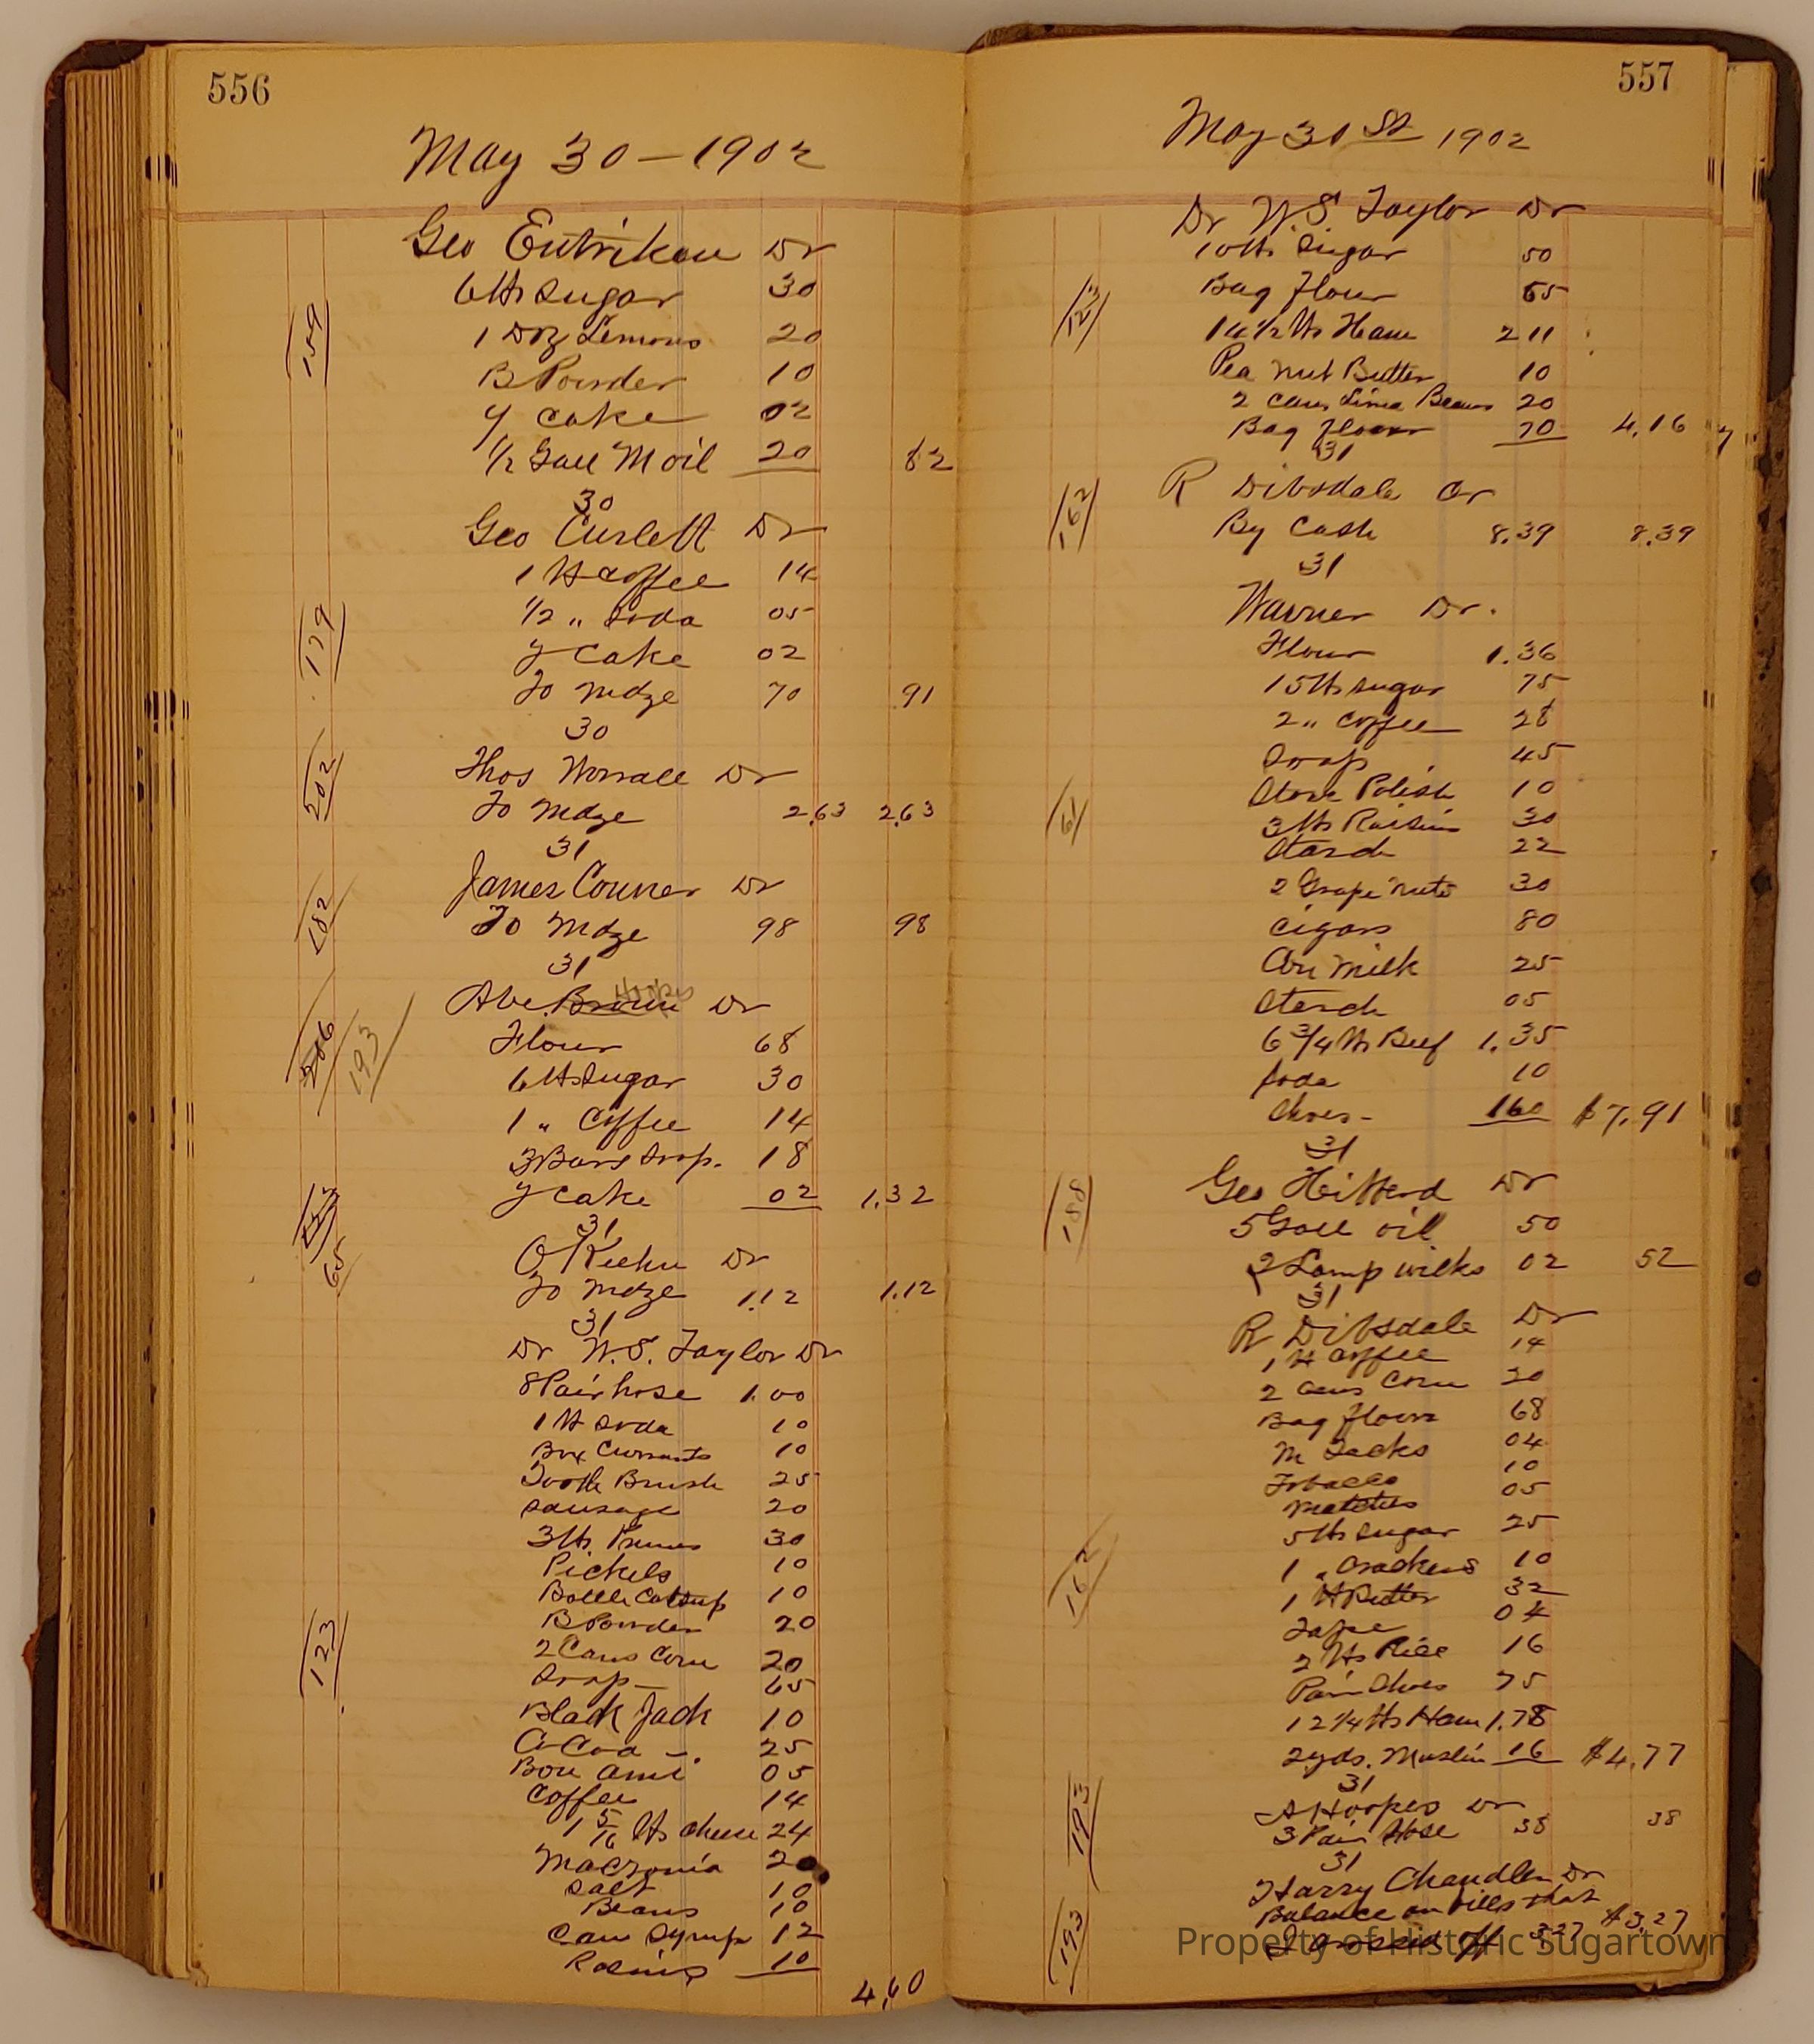 556
May 30 – 1902
Geo Entriken Dr
159
6 lbs Sugar 30
1 Doz Lemons 20
B Powder 10
Y cake 02
1/2 Gall M oil 20 82
30
Geo Curlett Dr
179
1 lb Coffee 14
1/2 " Soda 05
Y Cake 02
To Mdze 70 91
30
202
Thos Worrall Dr
To Mdze 2.63 2.63
31
182
James Conner Dr
To Mdze 98 98
31
206 193
Abe Brown Hoopes Dr
Flour 68
6 lbs Sugar 30
1 " Coffee 14
3 Bars Soap. 18
Y Cake 02 1.32
31
65
O Keehn Dr
To Mdze 1.12 1.12
31
Dr W.S. Taylor Dr
8 Pair hose 1.00
1 lb Soda 10
Box Currants 10
Tooth Brush 25
Sausage 20
3 lbs Prunes 30
Pickels 10
Bottle Catsup 10
B Powder 20
123
2 Cans Corn 20
Soap 65
Black Jack 10
CoCoa 25
Bon Ami 05
Coffee 14
1 5/16 lbs cheese 24
Macronia 20
Salt 10
Beans 10
Can Syrup 12
Rasins 10
4,60
557
May 30 St 1902
Dr W.S Taylor Dr
10 lbs Sugar 50
123
Bag Flour 65
14 1/2 lbs Ham 2 11
Pea nut Butter 10
2 cans Lima Beans 20
Bag flour 70 4.16
31
162
R Dibsdale Cr
By Cash 8.39 8.39
31
Warner Dr.
Flour 1.36
15 lbs sugar 75
2 " Coffee 28
Soap 45
Stove Polish 10
61
3 lbs Raisins 30
Starch 22
2 Grape nuts 30
Cigars 80
Con Milk 25
Starch 05
6 3/4 lbs Beef 1.35
Soda 10
Shoes - 160 $7.91
31
188
Geo Hibberd Dr
5 Gall oil 50
2 Lamp wilks 02 52
31
R Dibsdale Dr
1 lb Coffee 14
2 cans Corn 20
Bag flour 68
M Tacks 04
Tobacco 10
Matches 05
5 lbs sugar 25
162
1 " Crackers 10
1 lb Butter 32
Tape 04
2 lbs Rice 16
Pair Shoes 75
12 1/4 lbs Ham 1.78
2 yds. Muslin 16 $4.77
31
193
A Hoopes Dr
3 Pair Hose 38 38
31
Harry Chandler Dr
193
Balance on bills that
327 $3.27
Property of Historic Sugartown